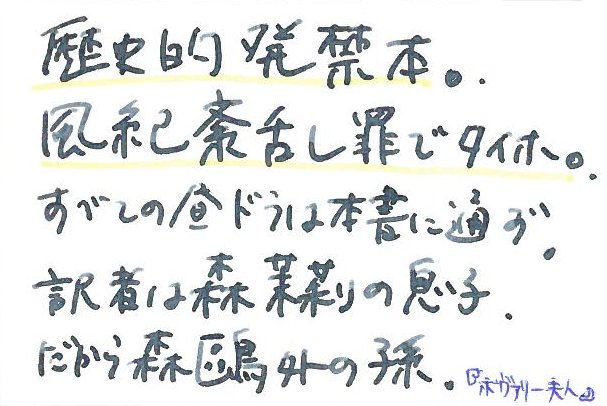 歴史的発禁本。
風紀紊乱し罪でタイホ。
すべての昼ドラは本書に通ず.
訳者は森茉莉の息子.
だから森鷗外の孫.
『ボヴァリー夫人』